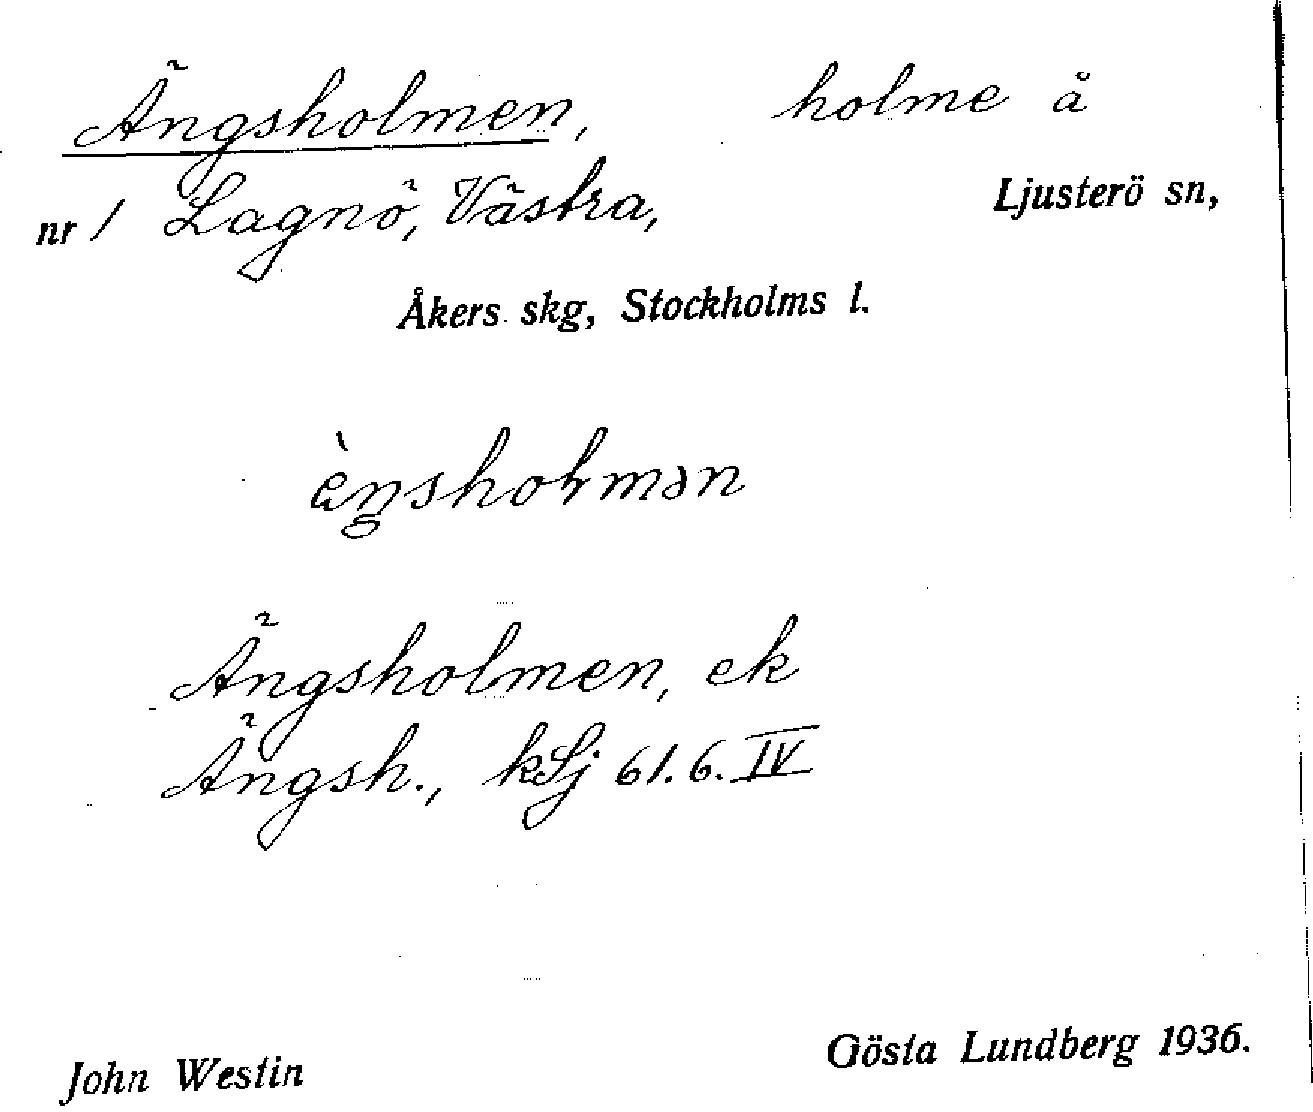 Ängsholmen, holme å
nr 1 Lagnö, Västra, Ljusterö sn,
Åkers skg, Stockholms l.
Ängsholmen, ek
Ängsh., kLj 61.6.IV
John Westin Gösta Lundberg 1936.